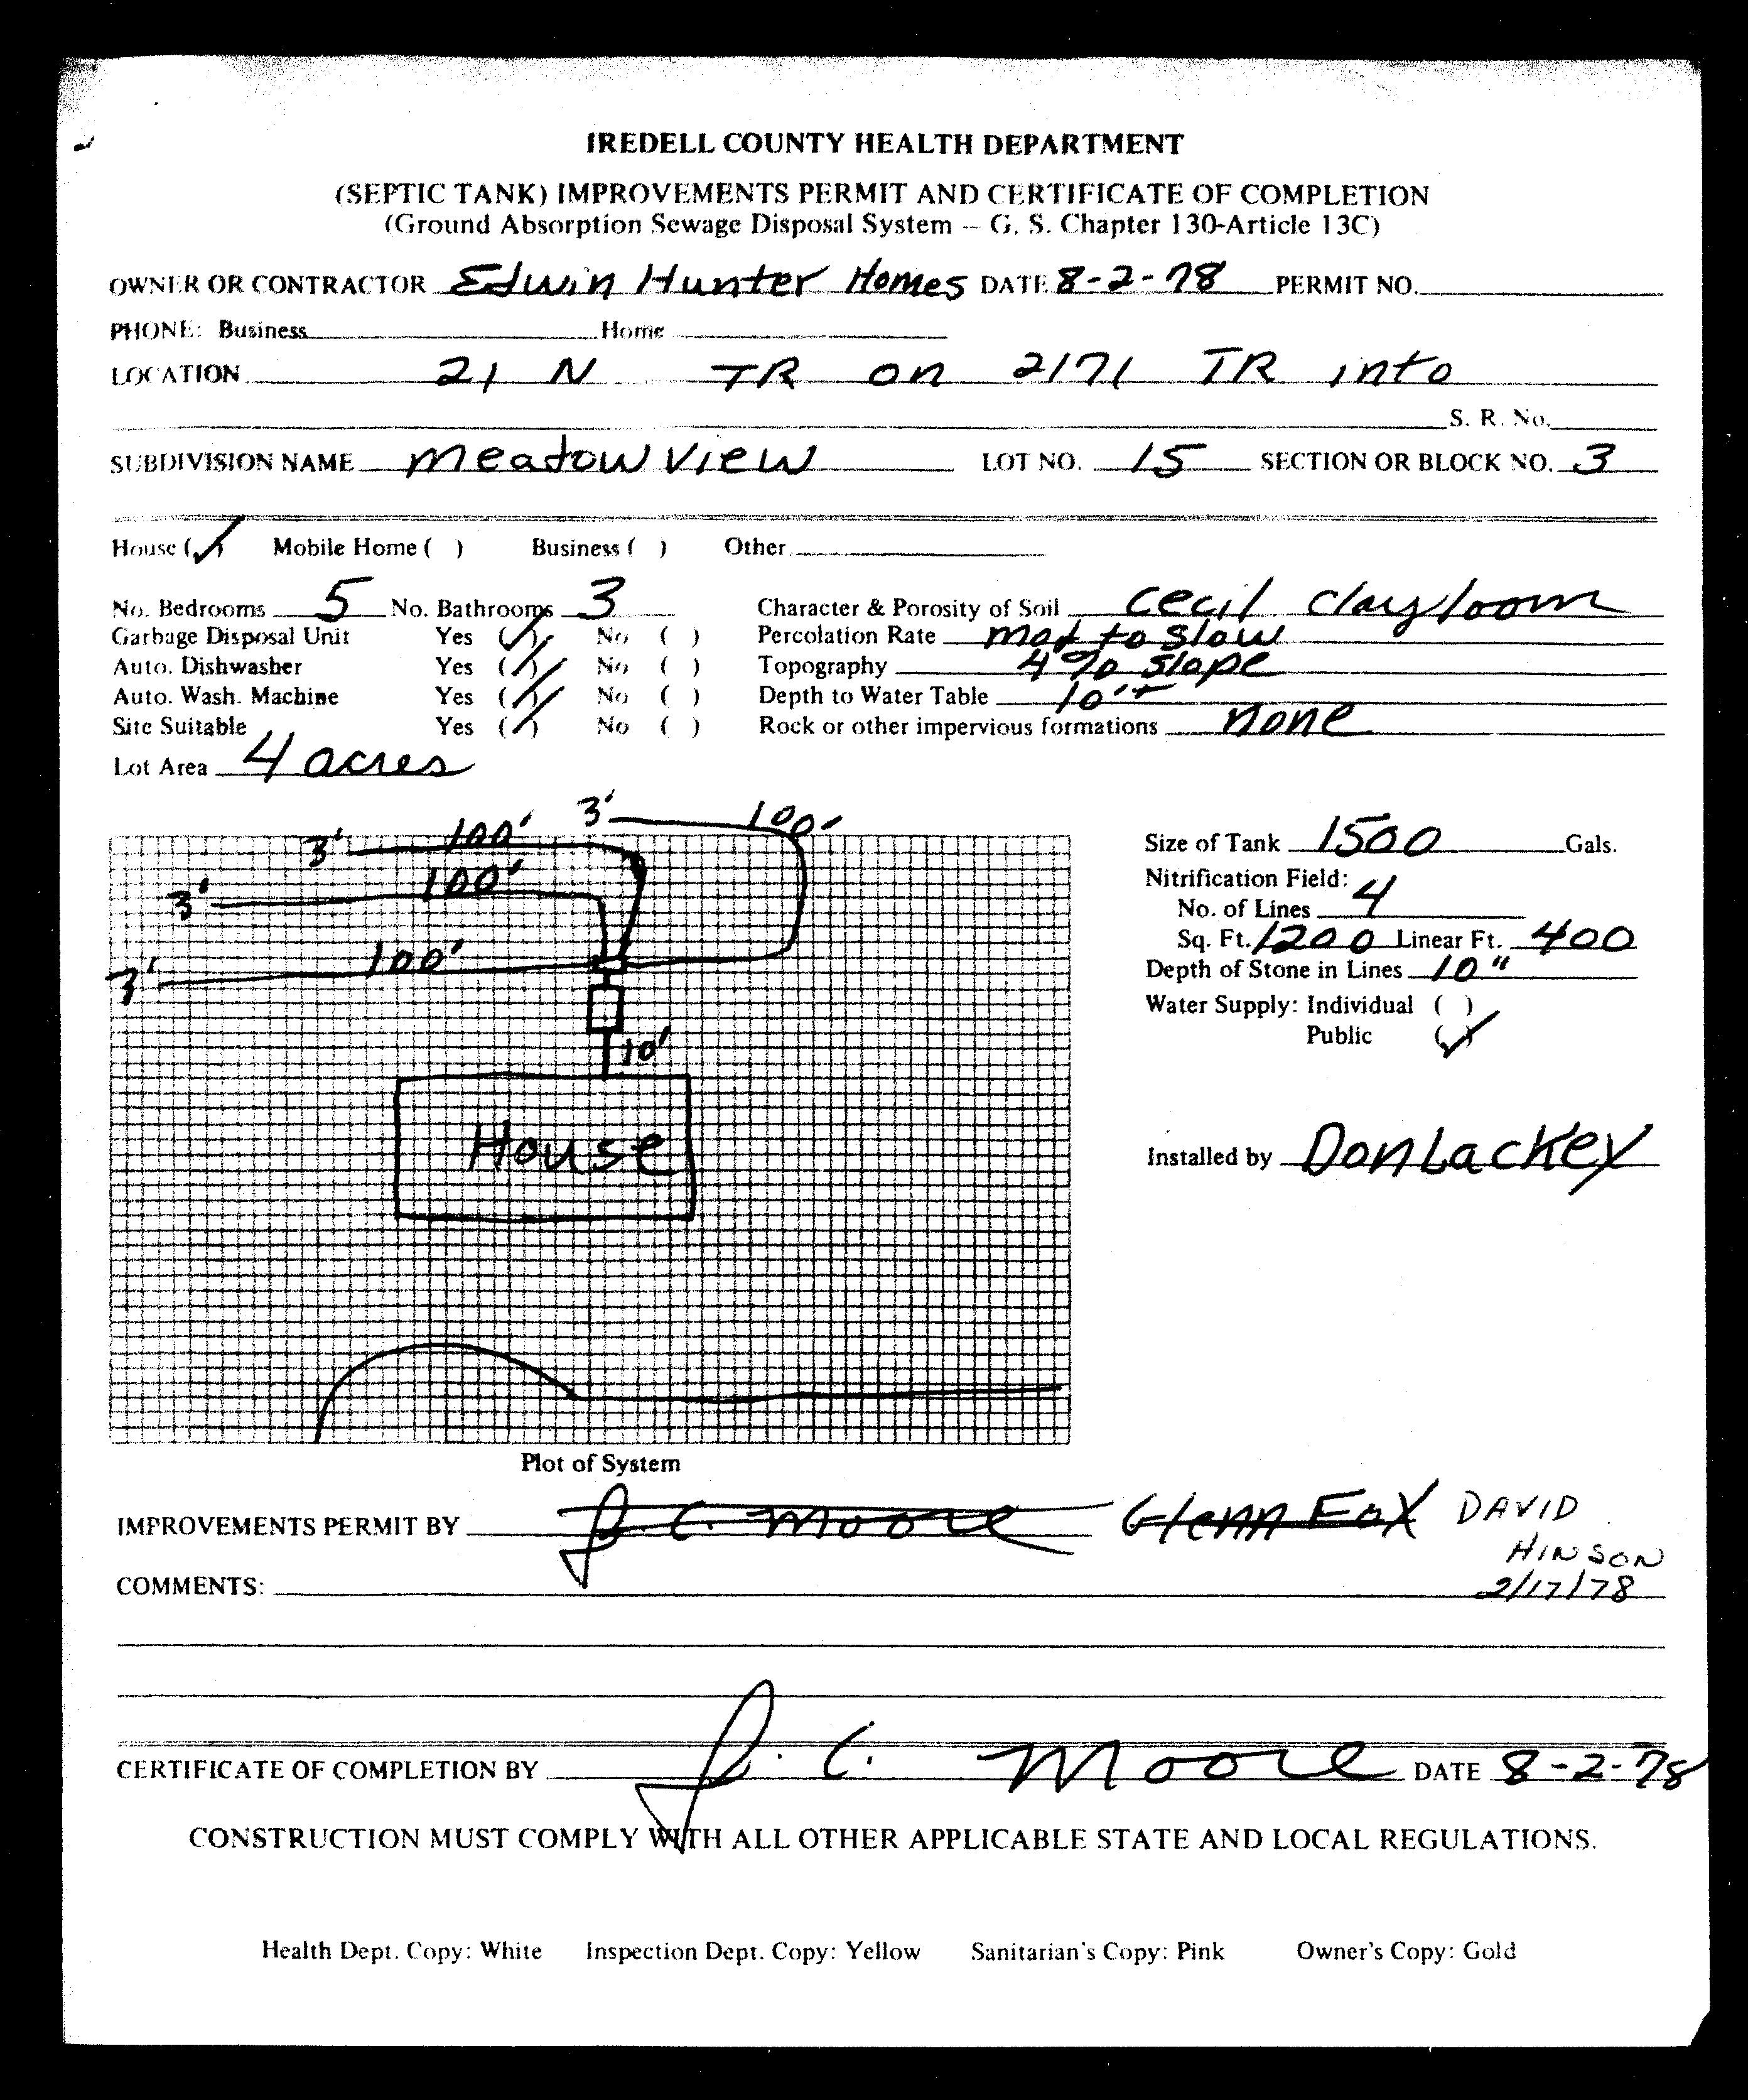 IREDELL COUNTY HEALTH DEPARTMENT
(SEPTIC TANK) IMPROVEMENTS PERMIT AND CERTIFICATE OF COMPLETION
(Ground Absorption Sewage Disposal System – G. S. Chapter 130-Article 13C)
OWNER OR CONTRACTOR Edwin Hunter Homes DATE 8-2-78 PERMIT NO.
PHONE: Business Home
LOCATION 21 N TR on 2171 TR into
S. R. No.
SUBDIVISION NAME Meadow View LOT NO. 15 SECTION OR BLOCK NO. 3
House (✓) Mobile Home ( ) Business ( ) Other
No. Bedrooms 5 No. Bathrooms 3 Character & Porosity of Soil Cecil clay loom
Garbage Disposal Unit Yes (✓) No ( ) Percolation Rate mod to slow
Auto. Dishwasher Yes (✓) No ( ) Topography 4% slope
Auto. Wash. Machine Yes (✓) No ( ) Depth to Water Table 10'+
Site Suitable Yes (✓) No ( ) Rock or other impervious formations none
Lot Area 4 acres
3' 100'
3' 100'
3' 100'
3' 100'
10'
House
Size of Tank 1500 Gals.
Nitrification Field:
No. of Lines 4
Sq. Ft. 1200 Linear Ft. 400
Depth of Stone in Lines 10"
Water Supply: Individual ( )
Public (✓)
Installed by Don Lackey
Plot of System
IMPROVEMENTS PERMIT BY J. C. Moore Glenn Fox DAVID
HINSON
COMMENTS: 2/17/78
CERTIFICATE OF COMPLETION BY J. C. Moore DATE 8-2-78
CONSTRUCTION MUST COMPLY WITH ALL OTHER APPLICABLE STATE AND LOCAL REGULATIONS.
Health Dept. Copy: White Inspection Dept. Copy: Yellow Sanitarian's Copy: Pink Owner's Copy: Gold